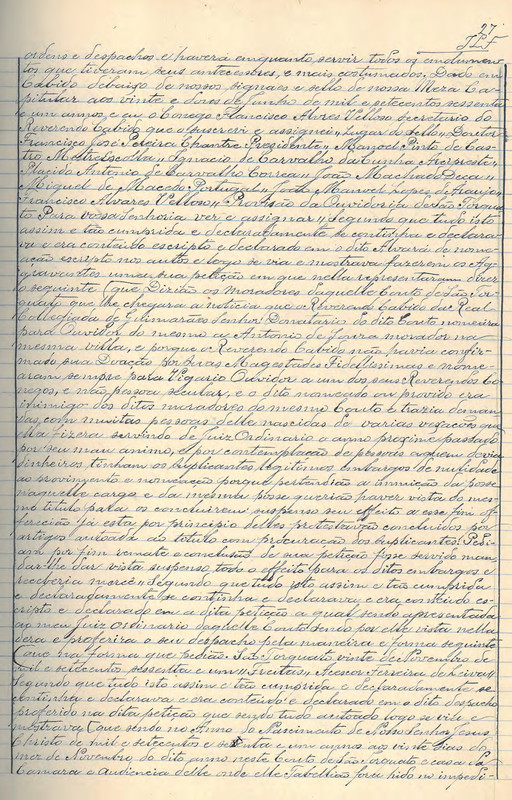 27
JLF
ordens e despachos e haverá emquanto servir todos os emolumen-
tos que tiveram seus antecessores, e mais costumados. Dado em
Cabido debaixo de nossos signaes e sello de nossa Meza Ca-
pitular aos vinte e dois de Junho de mil e setecentos sessenta
e um annos, e eu o Conego Francisco Alvres Velloso secretario do
Reverendo Cabido que o sunscrevi e assignei, Lugar do sello, Doutor
Francisco José Pereira Chantre Presidente, Manoel Pinto de Cas-
tro Mestre Escolla, Ignacio de Carvalho da Cunha Arcipreste,
Placido Antonio de Carvalho Correa, João Machado Deça,
Miguel de Macedo Portugal, João Manoel Lopes de Araujo,
Francisco Alvares Velloso, Provisão da Ouvidoria de São Torqua-
to Para vossa Senhoria ver e assignar, Segundo que tudo isto
assim e tão cumprida e declaradamente se continha e declara-
va e era contendo escripto e declarado em o dito Alvará de nome-
ação escripto nos auttos e logo se via e mostrava fazerem os Ag-
gravantes uma sua petição em que nella representaram dizer
o seguinte (que Dizião os Moradores daquelle Couto de São Tor-
quato que lhe chegara á noticia que o Reverendo Cabido da Real
Collegiada de Guimarães Senhor Donatario do dito Couto nomeira
para Ouvidor do mesmo a Antonio de Souza morador na
mesma villa, e porque o Reverendo Cabido não havia confir-
mado sua Doação por suas Magestades Fidelissimas e nome-
aram sempre para Vigario Ouvidor a um dos seus Reverendos Co-
negos, e não pessoa secular, e o dito nomeado ou provido era
inimigo dos ditos moradores do mesmo Couto e trazia deman-
das com muitas pessoas delle nascidas de varias vexações que
ella fizera servindo de Juiz Ordinario o anno proximo passado
por seu mau animo, e por contemplação de pessoas a quem devia
dinheiros tinham os supplicantes legitimos embargos de nullidade
ao provimento e nomeação porque pertendião a inunição da posse
naquelle cargo e da mesma posse querião haver vista do mes-
mo titulo para os concluirem suspenso seu effeito a esse fim of-
fereciam já esta por principio delles protestavão concluidos por
artigos autoada ao totulo com procuração dos supplicantes. Pedi-
am por fim remate e conclusão de sua petição fosse servido man-
dar-lhe dar vista suspenso todo o effeito para os ditos embargos e
receberia mercê, Segundo que tudo isto assim e tão cumprida
e declaradamente se continha e declarava e era contendo es-
cripto e declarado em a dita petição a qual sendo apresentada
ao meu Juiz Ordinario daquelle Couto sendo por elle vista nella
dera e proferira o seu despacho pela maneira e forma seguinte
(que na forma que pedião. São Torquato vinte de Novembro de
mil e setecentos sessenta e um, Freitas, Acessor Ferreira de Leiva,
Segundo que tudo isto assim e tão cumprida e declaradamente se
continha e declarava e era contendo e declarado em o dito despacho
proferido na dita petição que sendo tudo auctoado logo se via e
mostrava (que sendo no Anno do Nascimento de Nosso Senhor Jesus
Christo de mil e setecentos e sessenta e um annos aos vinte dias do
mez de Novembro do dito anno neste Couto de São Torquato e casa da
Camara e Audiencia delle onde elle Tabellião fora hido no impedi-